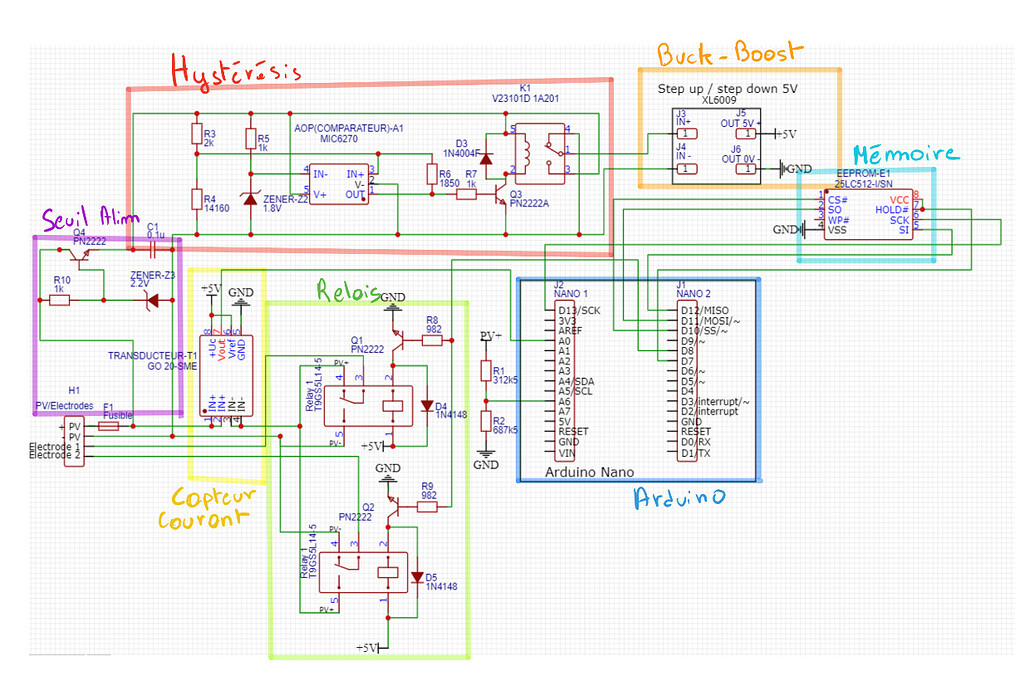 Hystérésis
Buck-Boost
K1
V23101D 1A201
Step up / step down 5V
XL6009
J3
IN+
1
J5
OUT 5V +
1
+5V
J4
IN -
1
J6
OUT 0V -
1
GND
R3
2k
R5
1k
AOP(COMPARATEUR)-A1
MIC6270
4 IN- IN+ 3
V- 2
5 V+ OUT 1
R4
14160
ZENER-Z2
1.8V
R6
1850
R7
1k
D3
1N4004F
5 4
1
2 3
Q3
PN2222A
Mémoire
EEPROM-E1
25LC512-I/SN
1 CS# VCC 8
2 SO HOLD# 7
3 WP# SCK 6
GND 4 VSS SI 5
Seuil Alim
Q4
PN2222
C1
0.1u
R10
1k
ZENER-Z3
2.2V
+5V GND
8 7 6 5
+Uc Vout Vref GND
TRANSDUCTEUR-T1
GO 20-SME
IN+ IN+ IN- IN-
1 2 3 4
Capteur
Courant
H1
PV/Electrodes
F1
Fusible
+ PV
- PV
Electrode 1
Electrode 2
Relais
GND
R8
982
Q1
PN2222
PV+
4 3 2
Relay 1
T9GS5L14-5
D4
1N4148
PV-
5 1
+5V
GND
R9
982
Q2
PN2222
PV-
4 3 2
Relay 1
T9GS5L14-5
D5
1N4148
PV+
5 1
+5V
PV+
R1
312k5
R2
687k5
GND
J2
NANO 1
D13/SCK
3V3
AREF
A0
A1
A2
A3
A4/SDA
A5/SCL
A6
A7
5V
RESET
GND
VIN
J1
NANO 2
D12/MISO
D11/MOSI/~
D10/SS/~
D9/~
D8
D7
D6/~
D5/~
D4
D3/interrupt/~
D2/interrupt
GND
RESET
D0/RX
D1/TX
Arduino Nano
Arduino